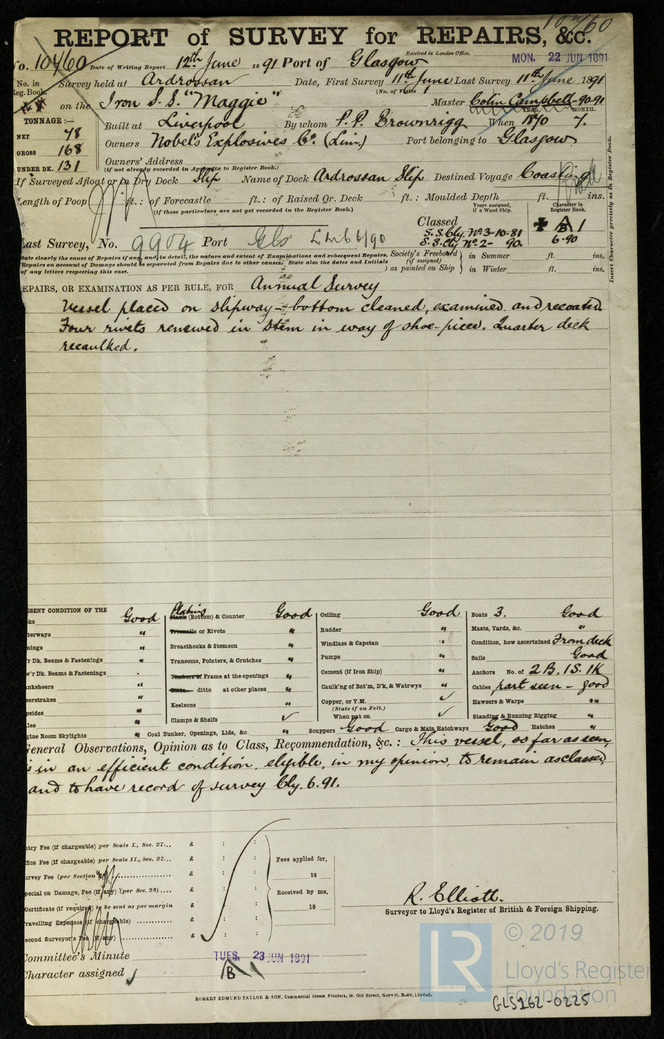 10460
REPORT of SURVEY for REPAIRS, &c.
Received in London Office,
No. 10460 Date of Writing Report 12th June 1891 Port of Glasgow MON. 22 JUN 1891
No. in Reg. Book. Survey held at Ardrossan Date, First Survey 11th June Last Survey 11th June 1891
(No. of Visits 1
on the Iron S.S. "Maggie" Master Colin Campbell 90.91
TONNAGE:— YEAR. MONTH.
NET 78 Built at Liverpool By whom P. P. Brownrigg When 1870 7.
GROSS 168 Owners Nobel's Explosives Co. (Lim.) Port belonging to Glasgow
UNDER DK. 131 Owners' Address
(if not already recorded in Appendix to Register Book.)
If Surveyed Afloat or in Dry Dock Slip Name of Dock Ardrossan Slip Destined Voyage Coasting
Length of Poop ft.: of Forecastle ft.: of Raised Qr. Deck ft.: Moulded Depth ft. ins.
(if those particulars are not yet recorded in the Register Book.)
Years assigned, if a Wood Ship. Character in Register Book.
Classed A 1
S.S. Gls. No. 3-10.81 6.90
S.S. Cly. No. 2- 90.
Last Survey, No. 9904 Port Gls
State clearly the cause of Repairs if any, and in detail, the nature and extent of Examinations and subsequent Repairs.
Repairs on account of Damage should be separated from Repairs due to other causes. State also the dates and Initials
of any letters respecting this case.
Society's Freeboard (if assigned) as painted on Ship
in Summer ft. ins.
in Winter ft. ins.
Insert Character precisely as in Register Book.
REPAIRS, OR EXAMINATION AS PER RULE, FOR Annual Survey
Vessel placed on slipway - bottom cleaned, examined and recoated
Four rivets renewed in stem in way of shoe-piece. Quarter deck
recaulked.
PRESENT CONDITION OF THE
Good
Waterways "
"
Dk. Beams & Fastenings "
Dk. Beams & Fastenings
"
"
"
"
Engine Room Skylights "
Plating (Bottom) & Counter Good
Treenails or Rivets "
Breasthooks & Stemson "
Transoms, Pointers, & Crutches "
Timbers of Frame at the openings "
Ditto ditto at other places "
Keelsons "
Clamps & Shelfs ✓
Coal Bunker, Openings, Lids, &c "
Ceiling Good
Rudder "
Windlass & Capstan "
Pumps "
Cement (if Iron Ship) "
Caulk'g of Bot'm, Dk, & Watrwys "
Copper, or Y.M. ✓
(State if on Felt.)
When put on ✓
Scuppers Good Cargo & Main Hatchways Good Hatches "
Boats 3. Good
Masts, Yards, &c. "
Condition, how ascertained From deck
Sails Good
Anchors No. of 2 B. 1 S. 1 K
Cables part seen - good
Hawsers & Warps "
Standing & Running Rigging "
General Observations, Opinion as to Class, Recommendation, &c.: This vessel, so far as seen,
is in an efficient condition, eligible, in my opinion, to remain as classed
and to have record of survey Cly. 6. 91.
Entry Fee (if chargeable) per Scale I., Sec. 27... £ : :
Office Fee (if chargeable) per Scale II., Sec. 27... £ : :
Survey Fee (per Section £ : :
Special on Damage, Fee (if any) (per Sec. 28) £ : :
Certificate (if required) to be sent as per margin £
Travelling Expenses (if chargeable) £
Second Surveyor's Fee (if any) £
Fees applied for,
18
Received by me,
18
R. Elliott.
Surveyor to Lloyd's Register of British & Foreign Shipping.
Committee's Minute TUES. 23 JUN 1891
Character assigned
ROBERT EDMUND TAYLOR & SON, Commercial Steam Printers, 19, Old Street, Goswell Road, London.
LR © 2019
Lloyd's Register
Foundation
GLS162-0225